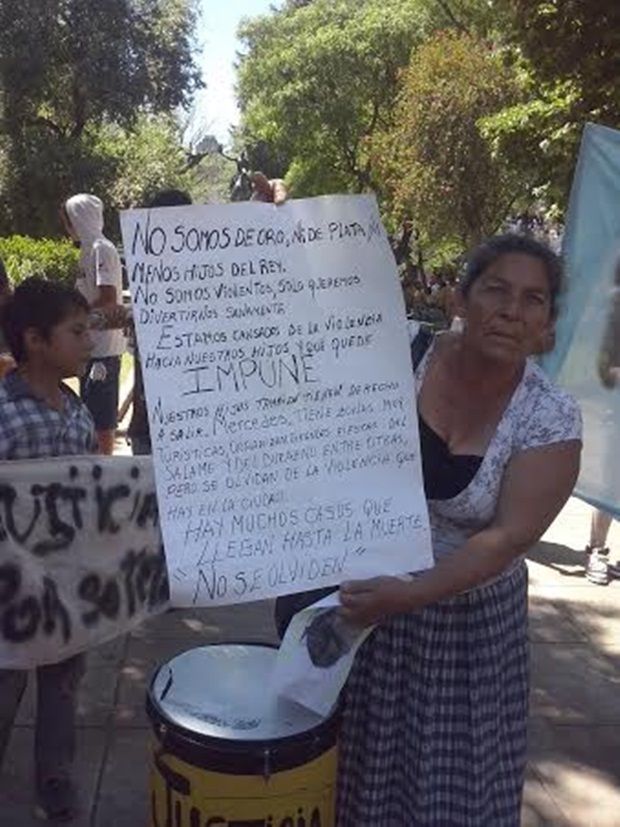 NO SOMOS DE ORO, NI DE PLATA, NI
MENOS HIJOS DEL REY.
NO SOMOS VIOLENTOS, SOLO QUEREMOS
DIVERTIRNOS SANAMENTE.
ESTAMOS CANSADOS DE LA VIOLENCIA
HACIA NUESTROS HIJOS Y QUE QUEDE
IMPUNE
NUESTROS HIJOS TAMBIEN TIENEN DERECHO
A SALIR. MERCEDES, TIENE ZONAS MUY
TURISTICAS, ORGANIZAN GRANDES FIESTAS DEL
SALAME Y DEL DURAZNO ENTRE OTRAS,
PERO SE OLVIDAN DE LA VIOLENCIA QUE
HAY EN LA CIUDAD.
HAY MUCHOS CASOS QUE
LLEGAN HASTA LA MUERTE
"NO SE OLVIDEN"
JUSTICIA
Justicia